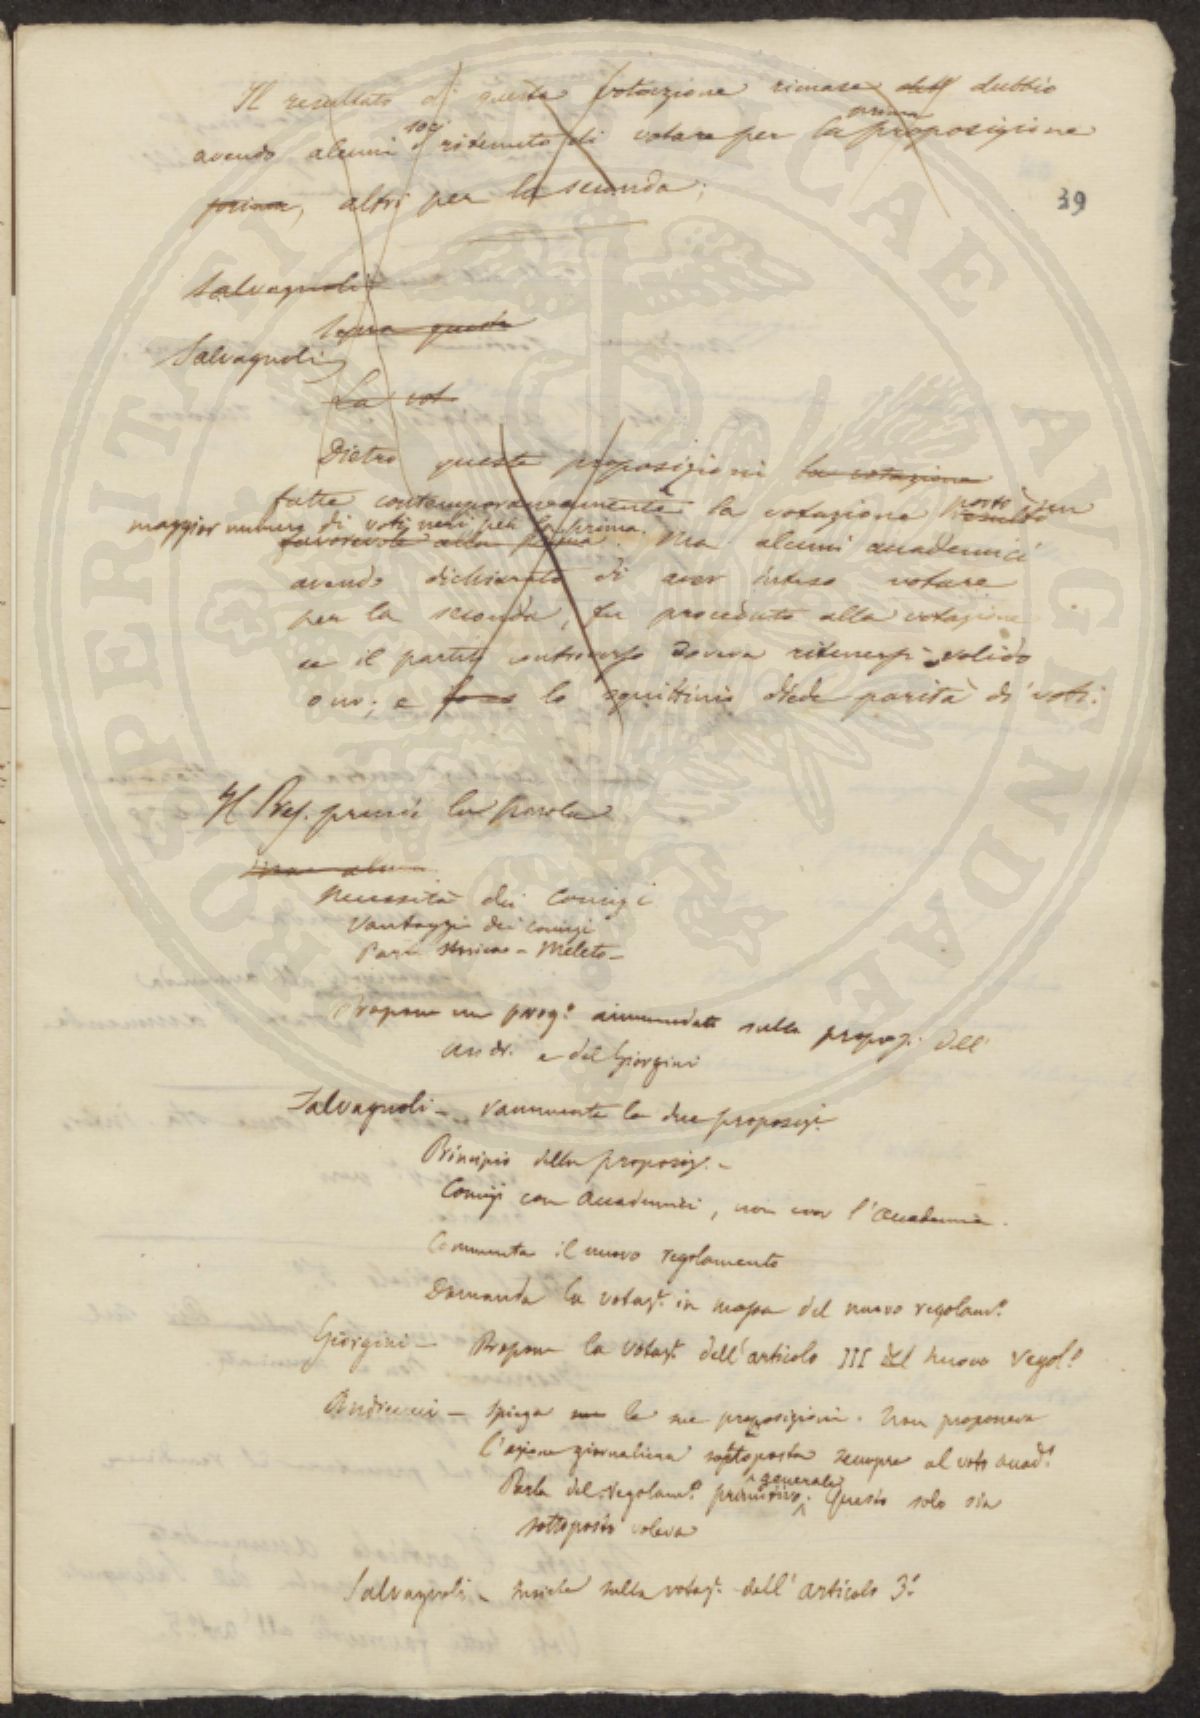 Il resultato di questa votazione rimase dubbio
avendo alcuni socj ritenuto di votare per la prima proposizione
prima, altri per la seconda;
39
Salvagnoli
Sopra queste
Salvagnoli
La vot
Dietro queste proposizioni la votazione
fatte contemporaneamente la votazione portò un
maggior numero di voti neri per la prima.
favorevole alla prima. Ma alcuni accademici
avendo dichiarato di aver inteso votare
per la seconda, fu proceduto alla votazione
se il partito controverso doveva ritenersi valido
o no; e lo squittinio diede parità di voti.
Il Pres. prende la parola
necessità dei comizi
Vantaggi dei comizi
Meleto
Propone un prog.º ammendato sulla propoz. dell'
Andr. e del Giorgini
Salvagnoli - rammenta le due proposiz.i
Principio della proposiz. -
Comizi con Accademici, non con l'Accademia.
Commenta il nuovo regolamento
Domanda la votaz.e in massa del nuovo regolam.º
Giorgini - Propone la votaz.e dell'articolo III del nuovo regol.º
Andreucci - spiega le sue proposizioni. Non proponeva
l'azione giornaliera sottoposta sempre al voto accad.º
Parla del regolam.º primitivo generale. Questo solo sia
sottoposto voleva
Salvagnoli - insiste sulla votaz.e dell'articolo 3.º
ACCADEMIAE PROSPERITATI PUBLICAE AUGENDAE